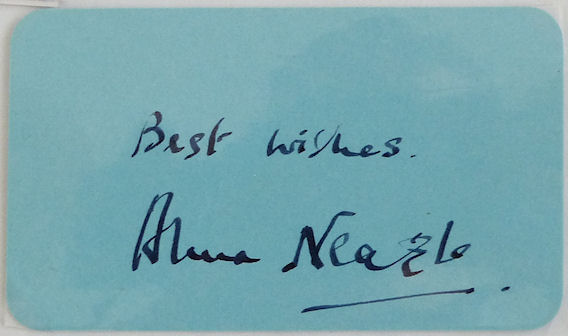 Best wishes.
Anna Neagle